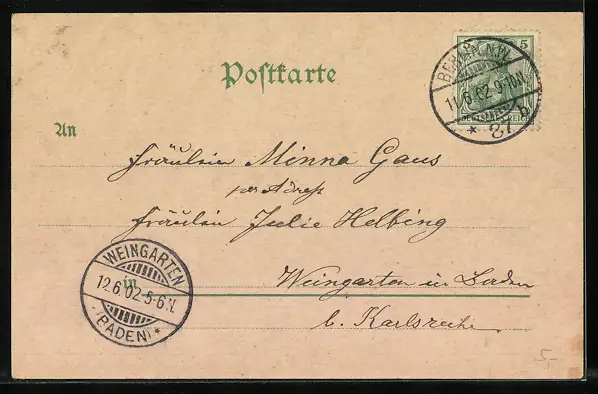 Postkarte
5
DEUTSCHES REICH
BERLIN N.W.
11.6.02.9-10N.
* 87 b
An
Fräulein Minna Gaus
per Adresse
Fräulein Julie Helbing
in Weingarten in Baden
b. Karlsruhe
WEINGARTEN
12.6.02.5-6N.
(BADEN) *
5-